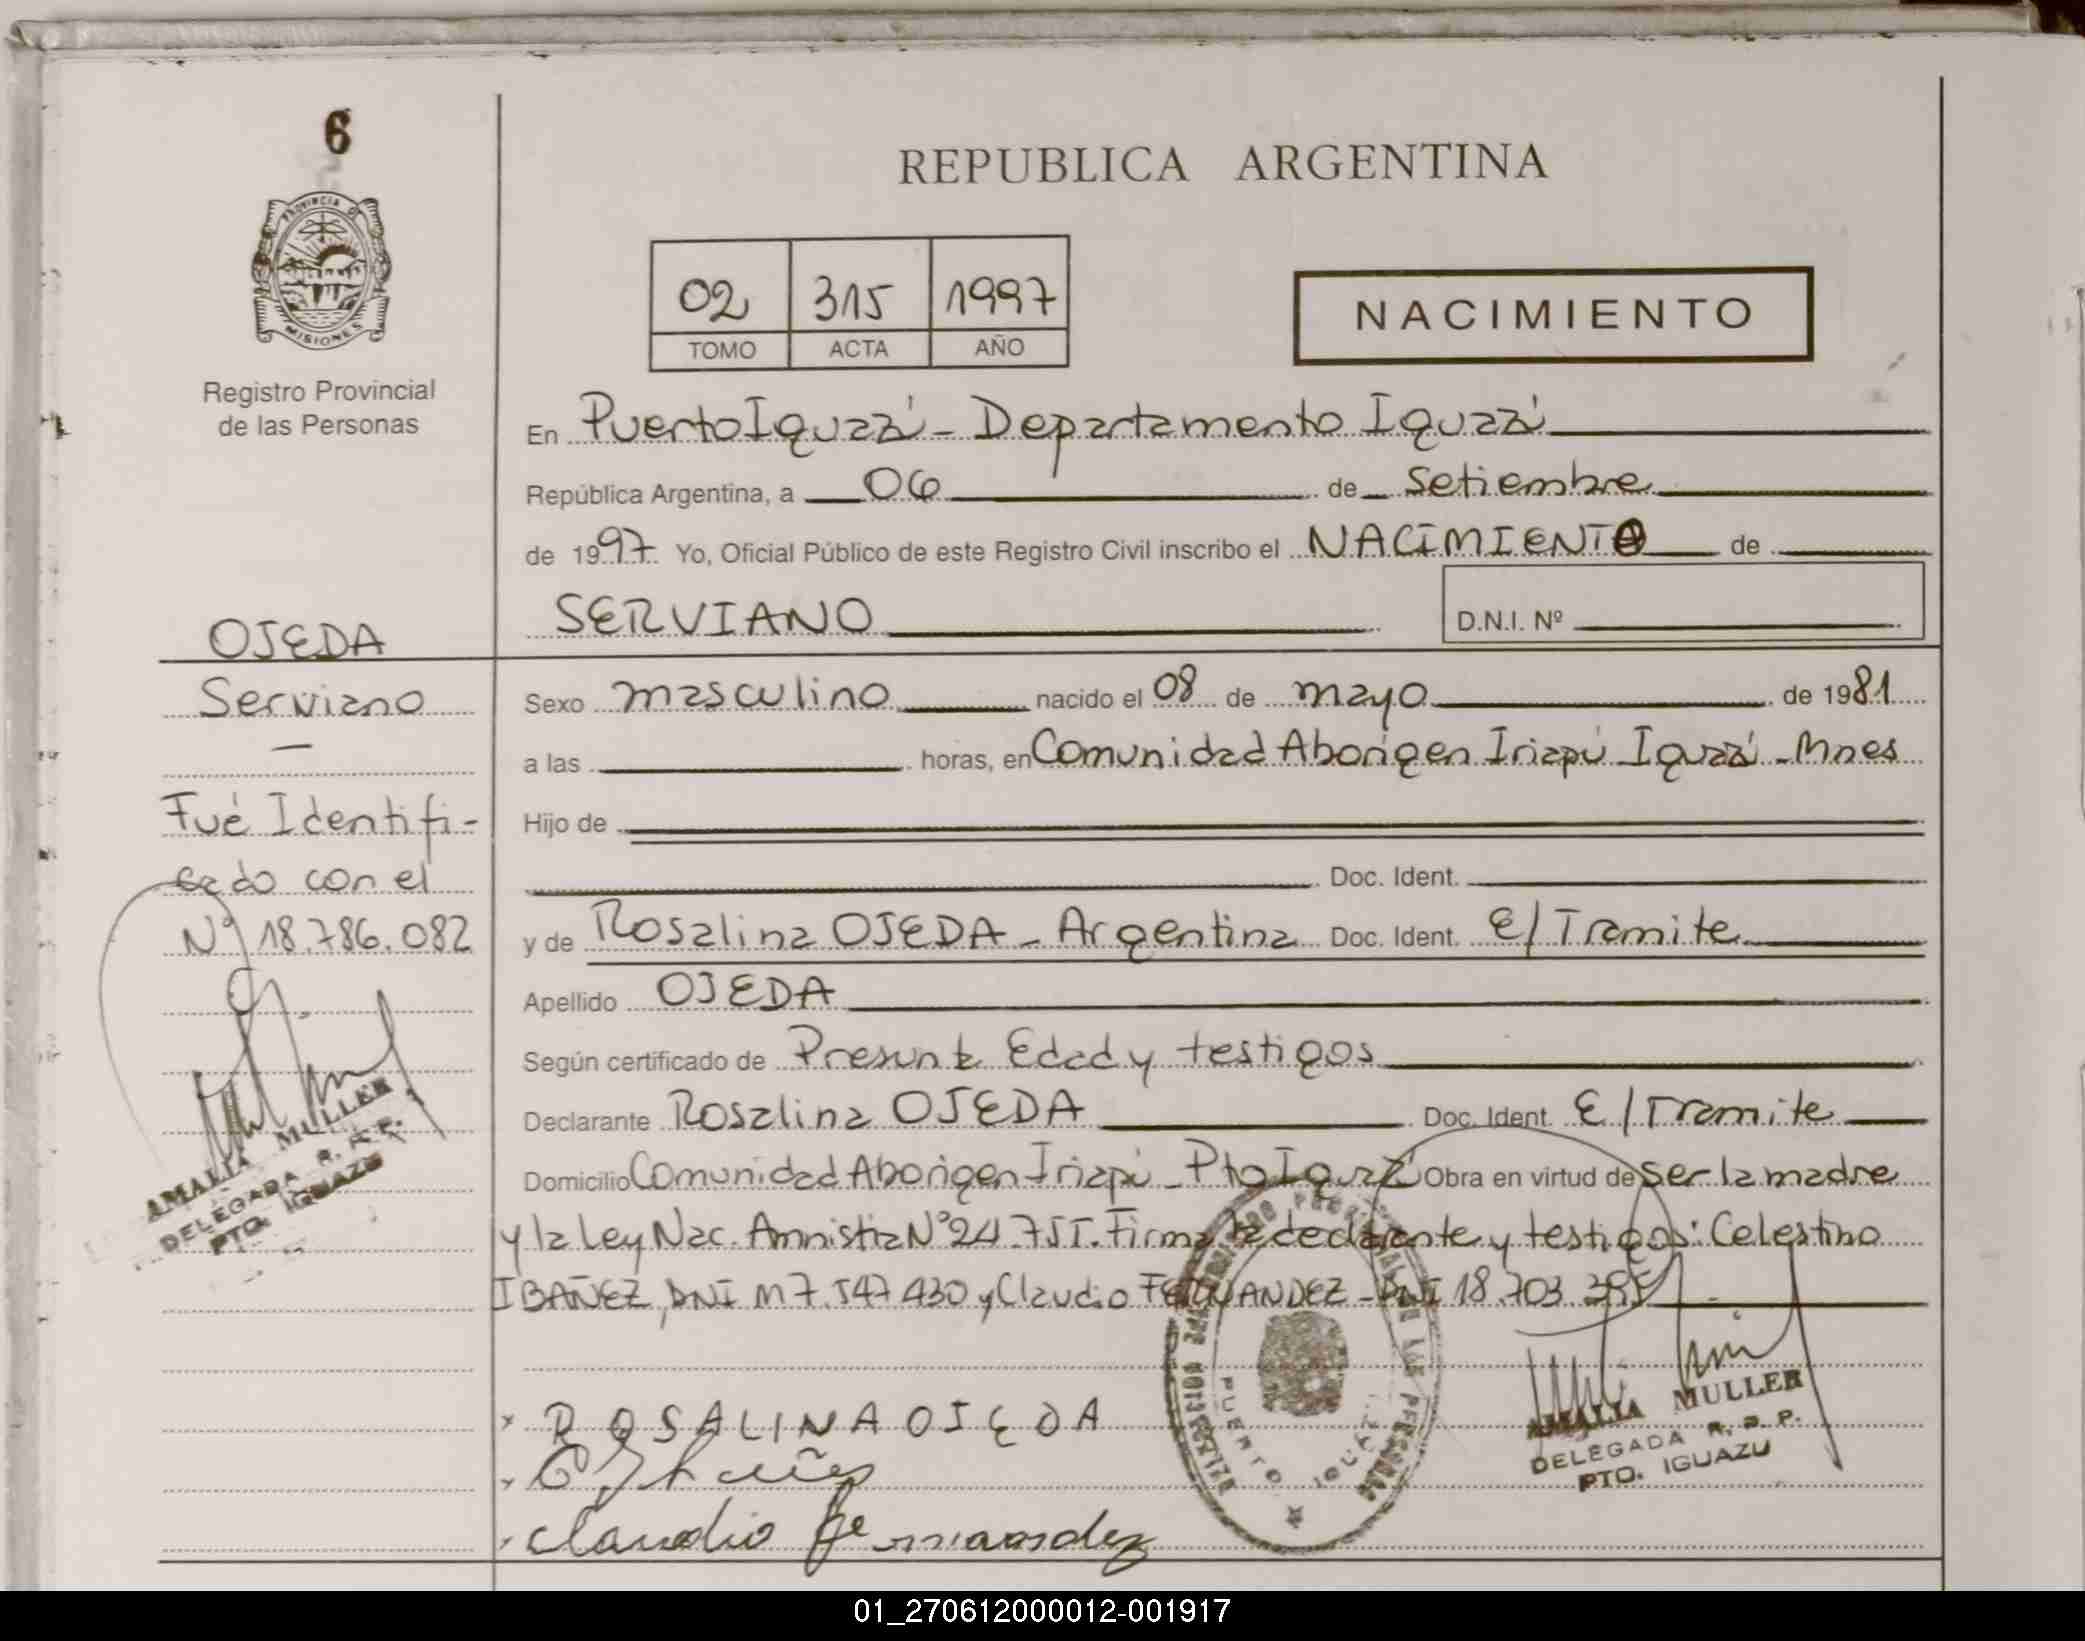 6
PROVINCIA D
MISIONES
Registro Provincial
de las Personas
REPUBLICA ARGENTINA
02 315 1997
TOMO ACTA AÑO
NACIMIENTO
En Puerto Iguazú - Departamento Iguazú
República Argentina, a 06 de Setiembre
de 1997 Yo, Oficial Público de este Registro Civil inscribo el NACIMIENTO de
SERVIANO D.N.I. Nº
OJEDA
Serviano
Fué Identifi-
cado con el
Nº 18.786.082
AMALIA MULLER
DELEGADA R. P. P.
PTO. IGUAZU
Sexo masculino nacido el 08 de mayo de 1981
a las horas, en Comunidad Aborigen Iriapú Iguazú - Mnes
Hijo de
Doc. Ident.
y de Rosalina OJEDA - Argentina Doc. Ident. E/Tramite
Apellido OJEDA
Según certificado de Presunta Edad y testigos
Declarante Rosalina OJEDA Doc. Ident. E/Tramite
Domicilio Comunidad Aborigen Iriapú - Pto Iguazú Obra en virtud de ser la madre
y la Ley Nac. Amnistia Nº 24.755. Firma la declarante y testigos: Celestino
IBAÑEZ, DNI M 7.547.430 y Claudio FERNANDEZ - DNI 18.703.
ROSALINA OJEDA
C Ibañez
Claudio Fernandez
PUERTO IGUAZU
AMALIA MULLER
DELEGADA R. P. P.
PTO. IGUAZU
01_270612000012-001917